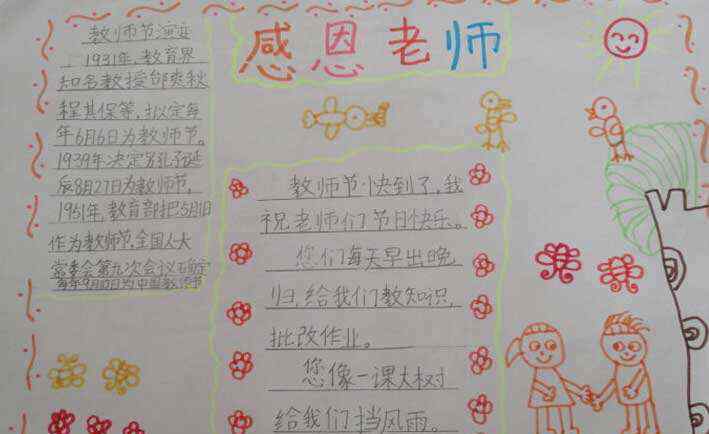 感恩老师
教师节演进
1931年,教育界
知名教授邰爽秋
程其保等,拟定每
年6月6日为教师节。
1939年决定另孔子诞
辰8月27日为教师节,
1951年,教育部把5月1日
作为教师节,全国人大
常委会第九次会议确定
每年9月10日为中国教师节
教师节快到了,我
祝老师们节日快乐。
您们每天早出晚
归,给我们教知识,
批改作业。
您像一课大树
给我们挡风雨。